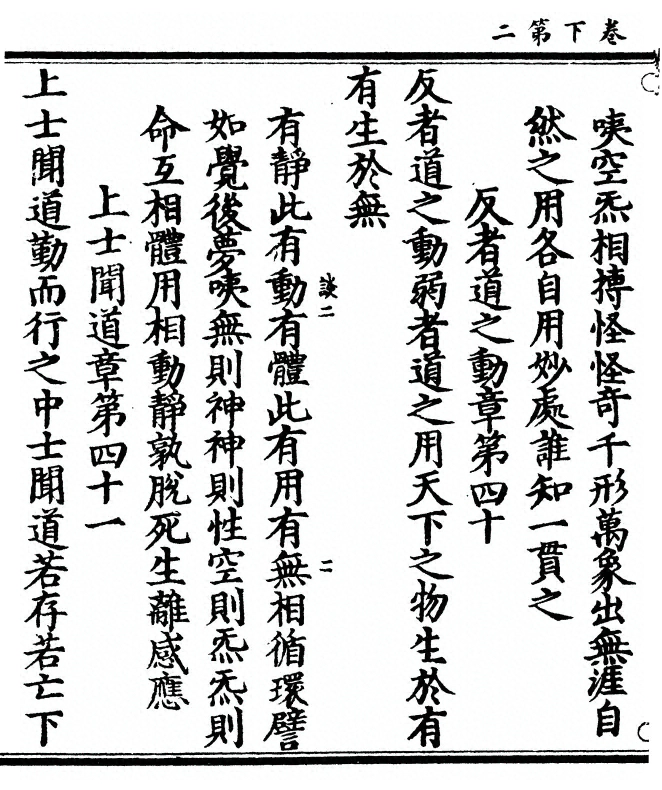 卷下第二
咦空炁相摶怪怪奇千形萬象出無涯自
然之用各自用妙處誰知一貫之
反者道之動章第四十
反者道之動弱者道之用天下之物生於有
有生於無
談二
二
有靜此有動有體此有用有無相循環譬
如覺後夢咦無則神神則性空則炁炁則
命互相體用相動靜孰脫死生離感應
上士聞道章第四十一
上士聞道勤而行之中士聞道若存若亡下